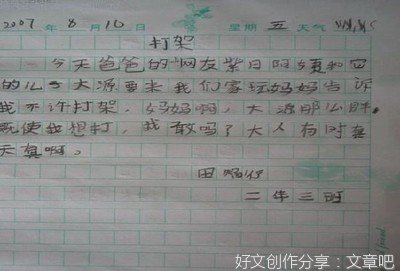 2007 年 8 月 10 日 星期 五 天气
打架
今天爸爸的网友紫日阿姨和它
的儿子大源要来我们家玩妈妈告诉
我不许打架。妈妈啊，大源那么胖，
就使我想打，我敢吗？大人有时真
天真啊。
田
二年三班
好文创作分享：文章吧